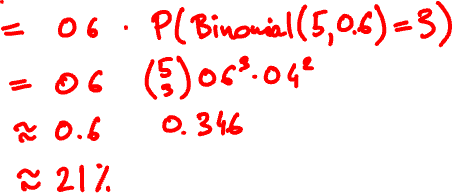 = 06 · P(Binomial(5,0.6)=3)
= 06 (5 3) 06³·04²
≈ 0.6 0.346
≈ 21%